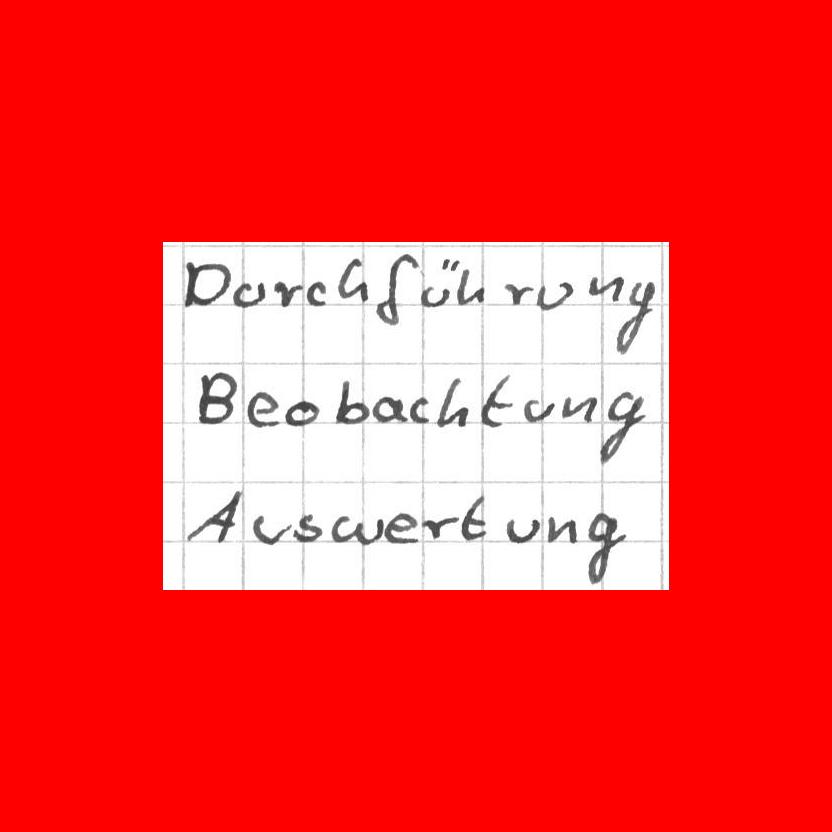 Durchführung
Beobachtung
Auswertung